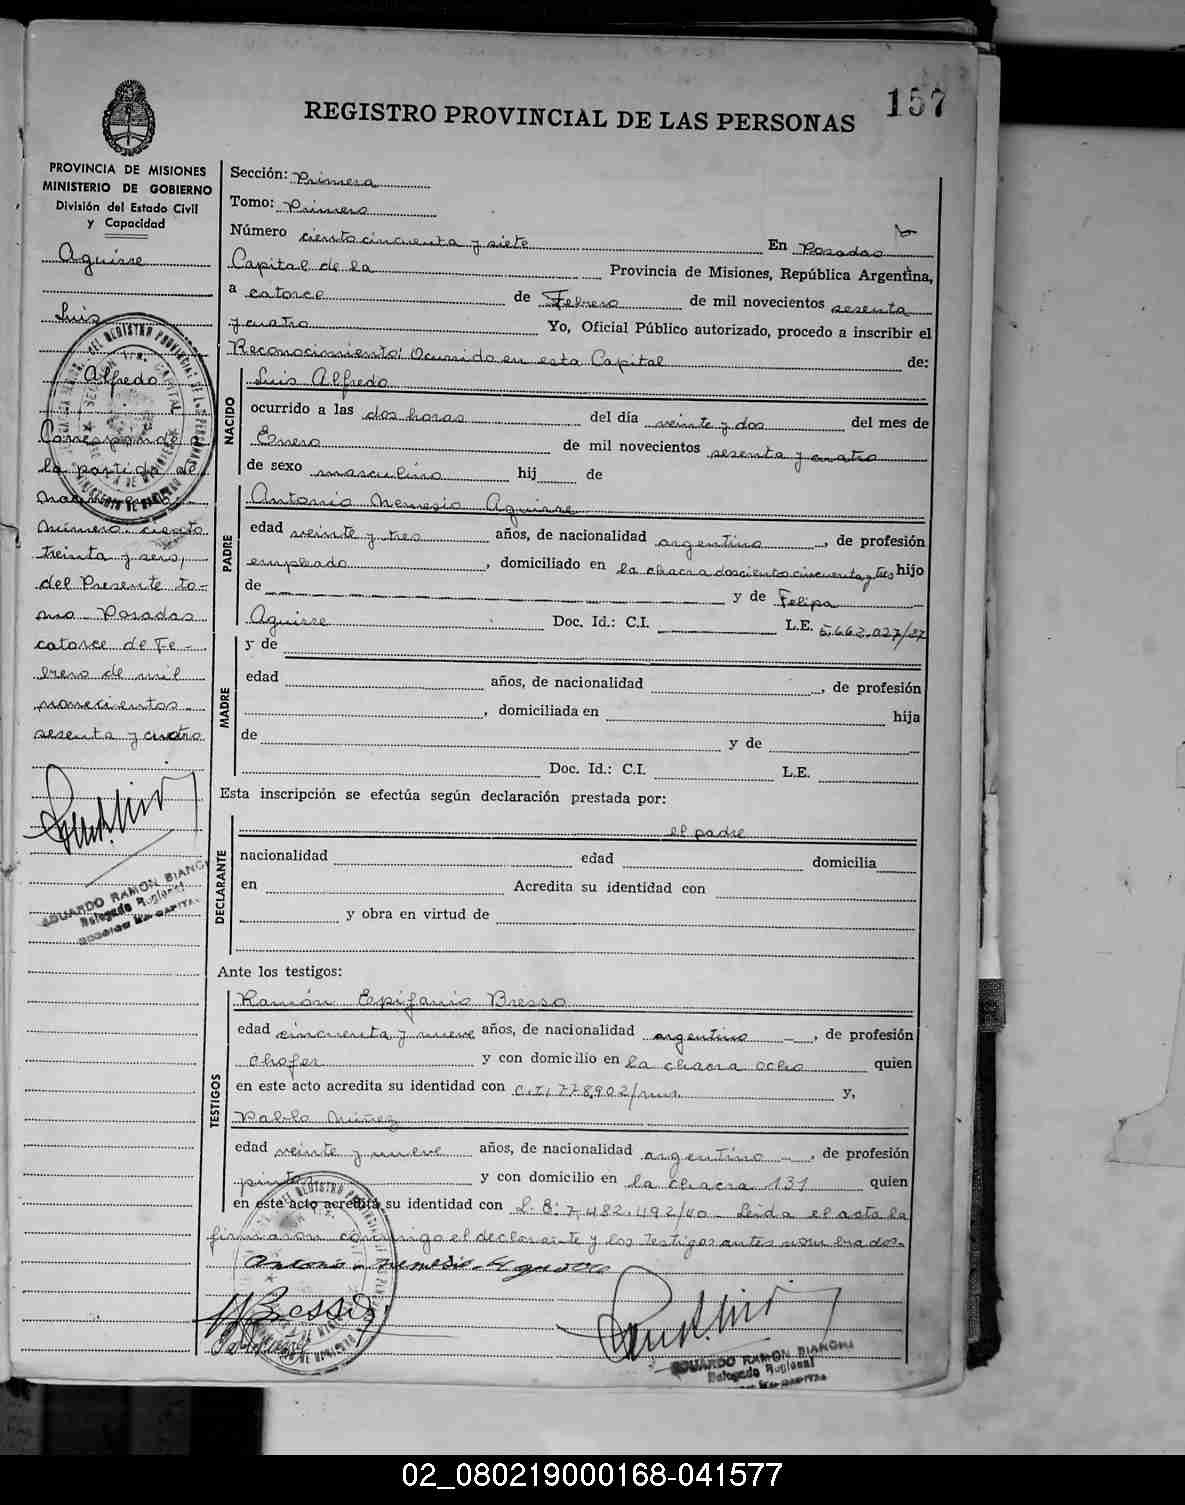 157
REGISTRO PROVINCIAL DE LAS PERSONAS
PROVINCIA DE MISIONES
MINISTERIO DE GOBIERNO
División del Estado Civil
y Capacidad
Aguirre
Luis
Alfredo
Corresponde a
la partida de
número ciento
treinta y seis,
del Presente to-
mo Posadas
catorce de Fe-
brero de mil
novecientos
sesenta y cuatro
EDUARDO RAMON BIANCHI
Delegado Regional
Sección: Primera
Tomo: Primero
Número ciento cincuenta y siete En Posadas
Capital de la Provincia de Misiones, República Argentina,
a catorce de Febrero de mil novecientos sesenta
y cuatro Yo, Oficial Público autorizado, procedo a inscribir el
Reconocimiento: Ocurrido en esta Capital de:
NACIDO
Luis Alfredo
ocurrido a las dos horas del día veinte y dos del mes de
Enero de mil novecientos sesenta y cuatro
de sexo masculino hij de
PADRE
Antonio Nemesio Aguirre
edad veinte y tres años, de nacionalidad argentino, de profesión
empleado, domiciliado en la chacra doscientos cincuenta y tres hijo
de y de Felipa
Aguirre Doc. Id.: C.I. L.E. 5.662.027/37
MADRE
y de
edad años, de nacionalidad , de profesión
, domiciliada en hija
de y de
Doc. Id.: C.I. L.E.
Esta inscripción se efectúa según declaración prestada por:
DECLARANTE
el padre
nacionalidad edad domicilia
en Acredita su identidad con
y obra en virtud de
Ante los testigos:
TESTIGOS
Ramón Epifanio Bresso
edad cincuenta y nueve años, de nacionalidad argentino -, de profesión
Chofer y con domicilio en la chacra ocho quien
en este acto acredita su identidad con C.I. 778.902/ y,
Pablo Núñez
edad veinte y nueve años, de nacionalidad argentino -, de profesión
pintor y con domicilio en la chacra 131 quien
en este acto acredita su identidad con L.E: 7.482.492/40 - Leida el acta la
firmaron conmigo el declarante y los testigos antes nombrados.
Antonio Nemesio Aguirre
EDUARDO RAMON BIANCHI
Delegado Regional
02_080219000168-041577